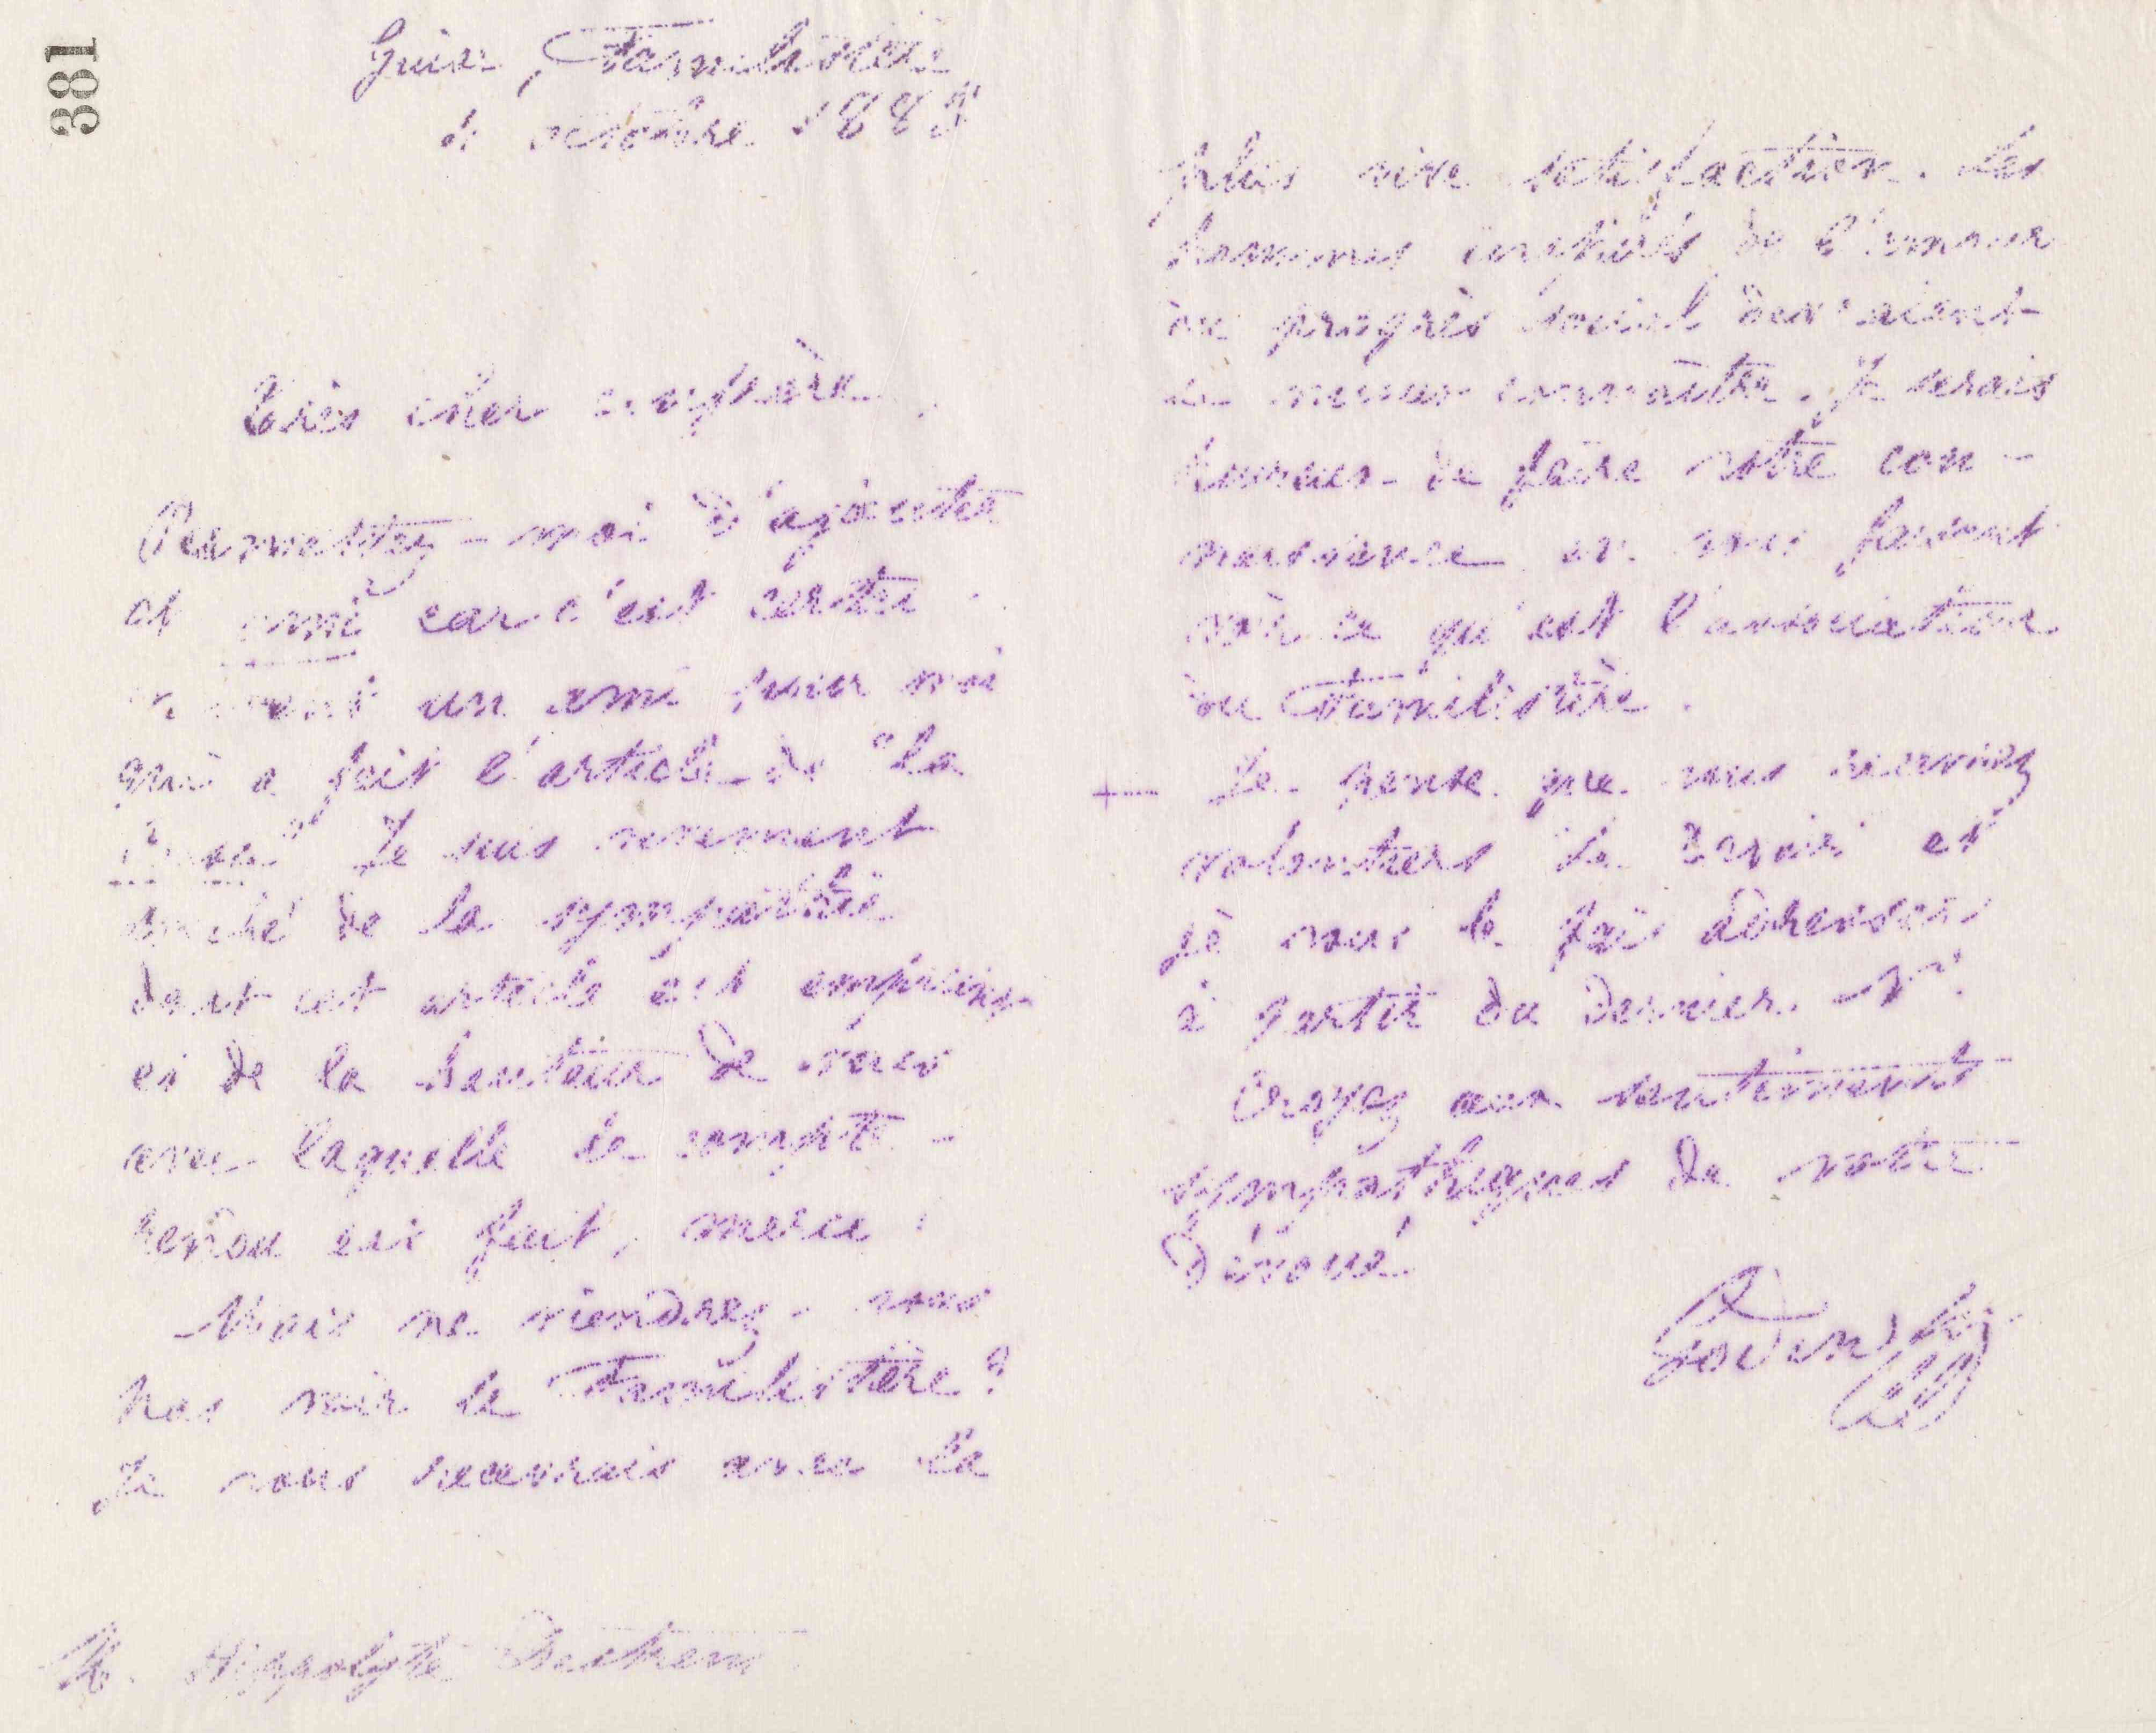 381
Guise, Familistère
octobre 188
Très cher confrère
Permettez-moi d'ajouter
et ami car c'est certai
nement un ami pour moi
qui a fait l'article de "La
Je suis vivement
touché de la sympathie
dont cet article est empreint
et de la hauteur de vues
avec laquelle le compte-
rendu est fait, merci.
Mais ne viendrez-vous
pas voir le Familistère?
Je vous recevrais avec la
plus vive satisfaction. Les
hommes inspirés de l'amour
du progrès social devraient
se mieux connaître. Je serais
heureux de faire votre con-
naissance en vous faisant
voir ce qu'est l'association
du Familistère.
Je pense que vous recevriez
volontiers le Devoir et
je vous le fais adresser
à partir du dernier N°.
Croyez aux sentiments
sympathiques de votre
dévoué
Godin
M. Hippolyte